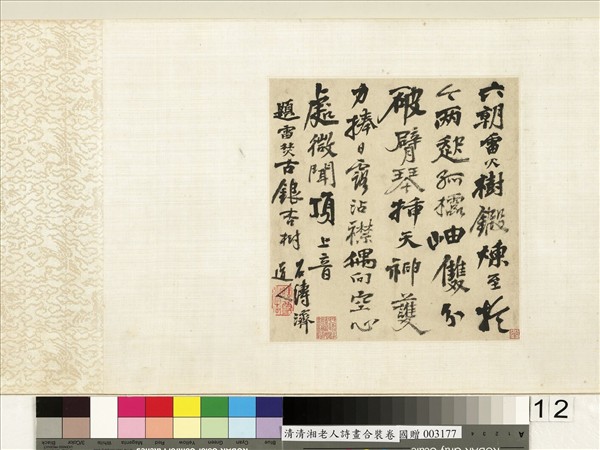 六朝雷火樹鍛煉至於
今兩起孤岫雙分
破臂琴插天神護
力捧日露沾襟偶向空心
處微聞頂上音
題雷焚古銀杏樹
石濤濟
道人
12
清清湘老人詩畫合裝卷 國贈 003177